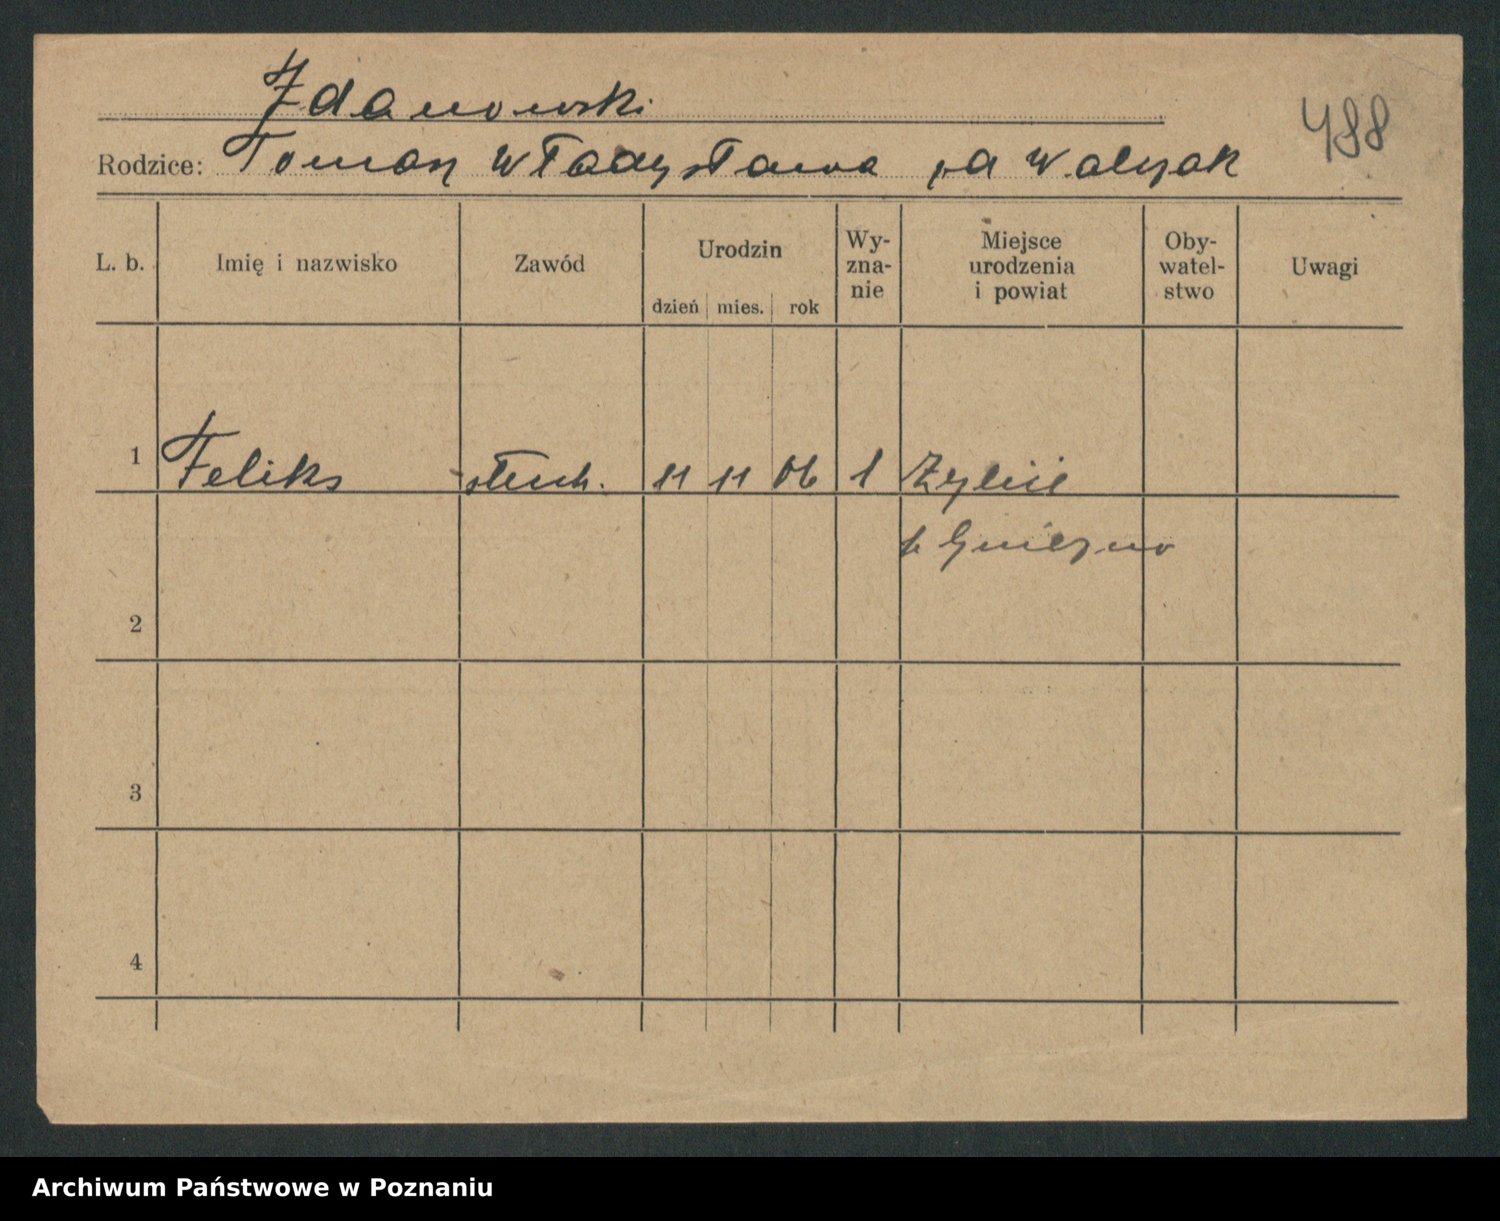 Zdanowski
488
Rodzice: Tomasz Władysława z d Walczak
L. b. Imię i nazwisko Zawód Urodzin dzień mies. rok Wy-zna-nie Miejsce urodzenia i powiat Oby-watel-stwo Uwagi
1 Feliks słuch. 11 11 06 1 Żylice
p Gniezno
2
3
4
Archiwum Państwowe w Poznaniu